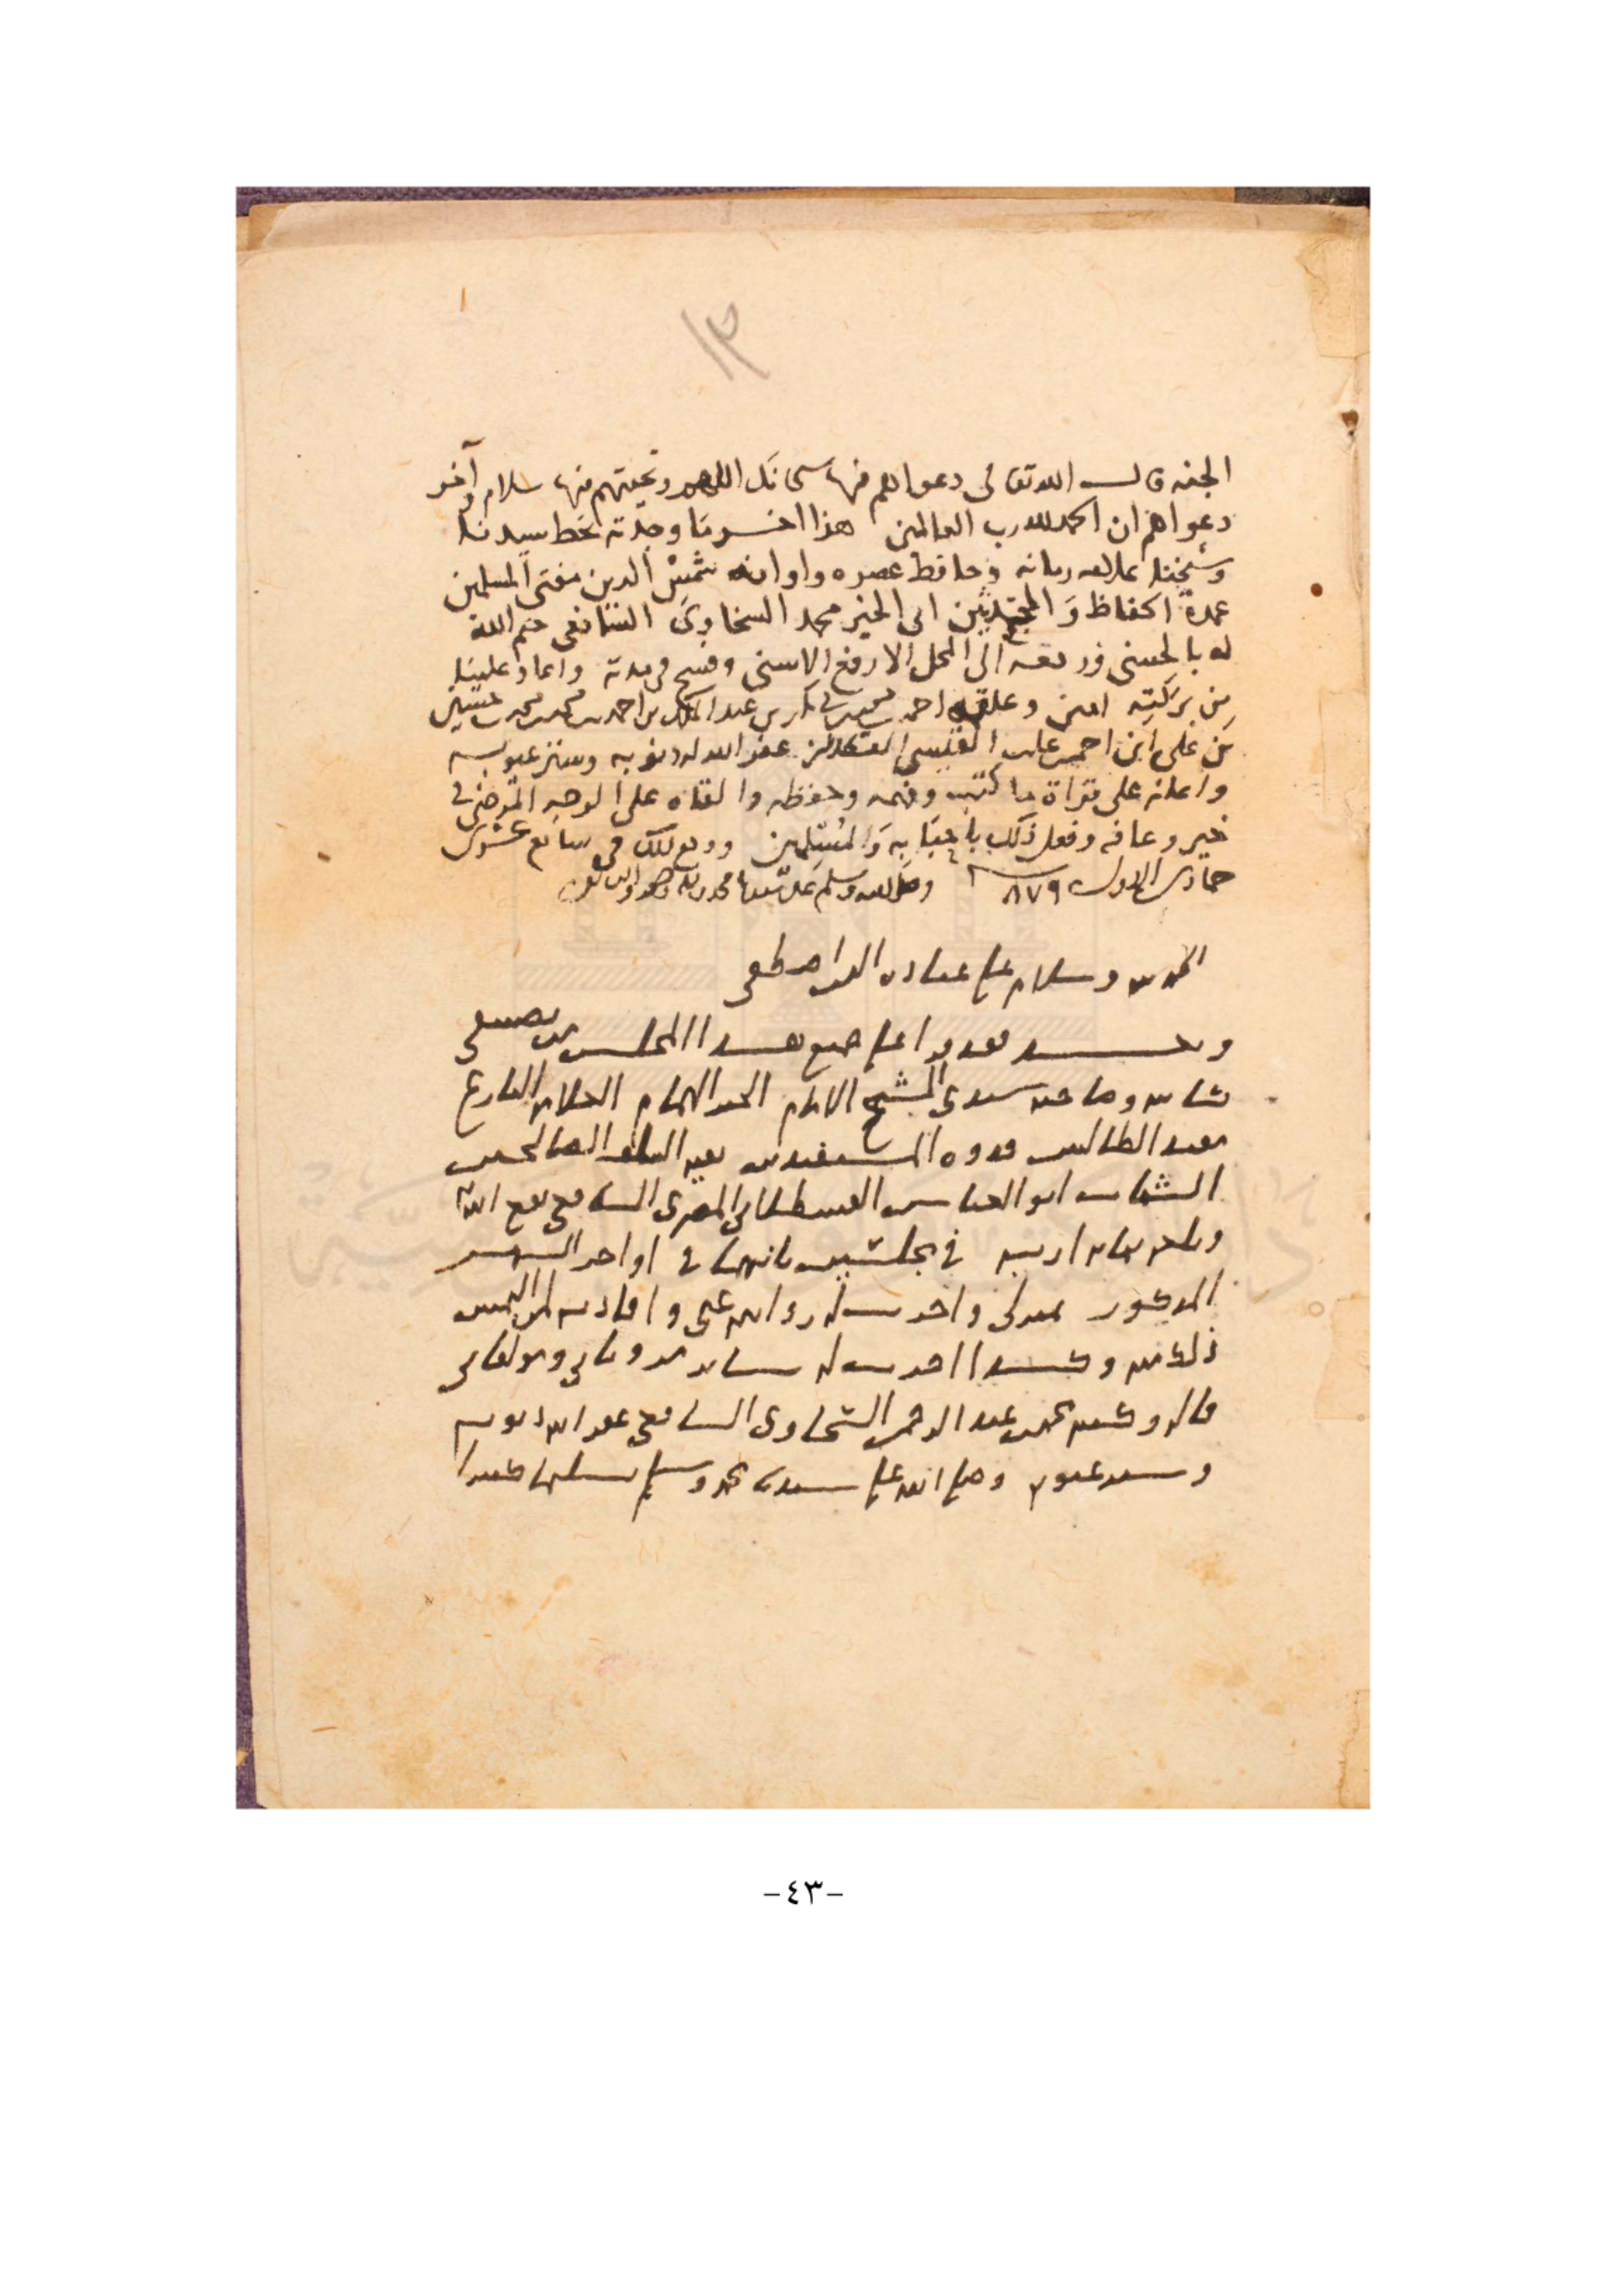 ١٣
الجنة قال الله تعالى دعواهم فيها سبحانك اللهم وتحيتهم فيها سلام وآخر
دعواهم ان الحمد لله رب العالمين هذا اخر ما وجدته بخط سيدنا
وشيخنا علامة زمانه وحافظ عصره واوانه شمس الدين مفتي المسلمين
عمدة الحفاظ والمحدثين ابي الخير محمد السخاوي الشافعي ختم الله
له بالحسنى ورفعه الى المحل الارفع الاسنى وفسح في مدته واعاد علينا
من بركته امين وعلقه احمد بن محمد بن ابي بكر بن عبد الملك بن احمد بن محمد بن محمد بن حسين
بن علي ابن احمد القسطلاني غفر الله له ذنوبه وستر عيوبه
واعانه على قراة ما كتب وفهمه وحفظه والقاه على الوجه المرضي في
خير وعافيه وفعل ذلك باحبابه والمسلمين ووقع ذلك في سابع عشرى
جمادى الاول سنة ٨٧٩ وصلى الله وسلم على سيدنا محمد
الحمد لله وسلام على عباده الذين اصطفى
وبعد فقد قرا علي جميع هذا المجلس من تصنيفي
كاتبه وصاحبه سيدي الشيخ الامام الهمام العلامة البارع
مفيد الطالبين قدوة المستفيدين بقية السلف الصالحين
الشهاب ابو العباس القسطلاني المصري الشافعي نفع الله
في مجلسين ثانيهما في اواخر الشهر
المذكور واجزت له روايته عني وافادته لمن التمس
ذلك منه وكذا اجزت له ساير مروياتي ومولفاتي
قاله وكتبه محمد بن عبد الرحمن السخاوي الشافعي غفر الله ذنوبه
وستر عيوبه وصلى الله على سيدنا محمد وسلم تسليما كثيرا
-٤٣-